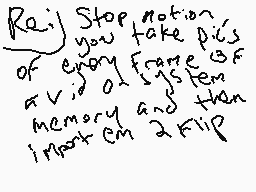 Re: Stop motion,
you take pics
of every frame of
a vid on system
memory and then
import em 2 flip